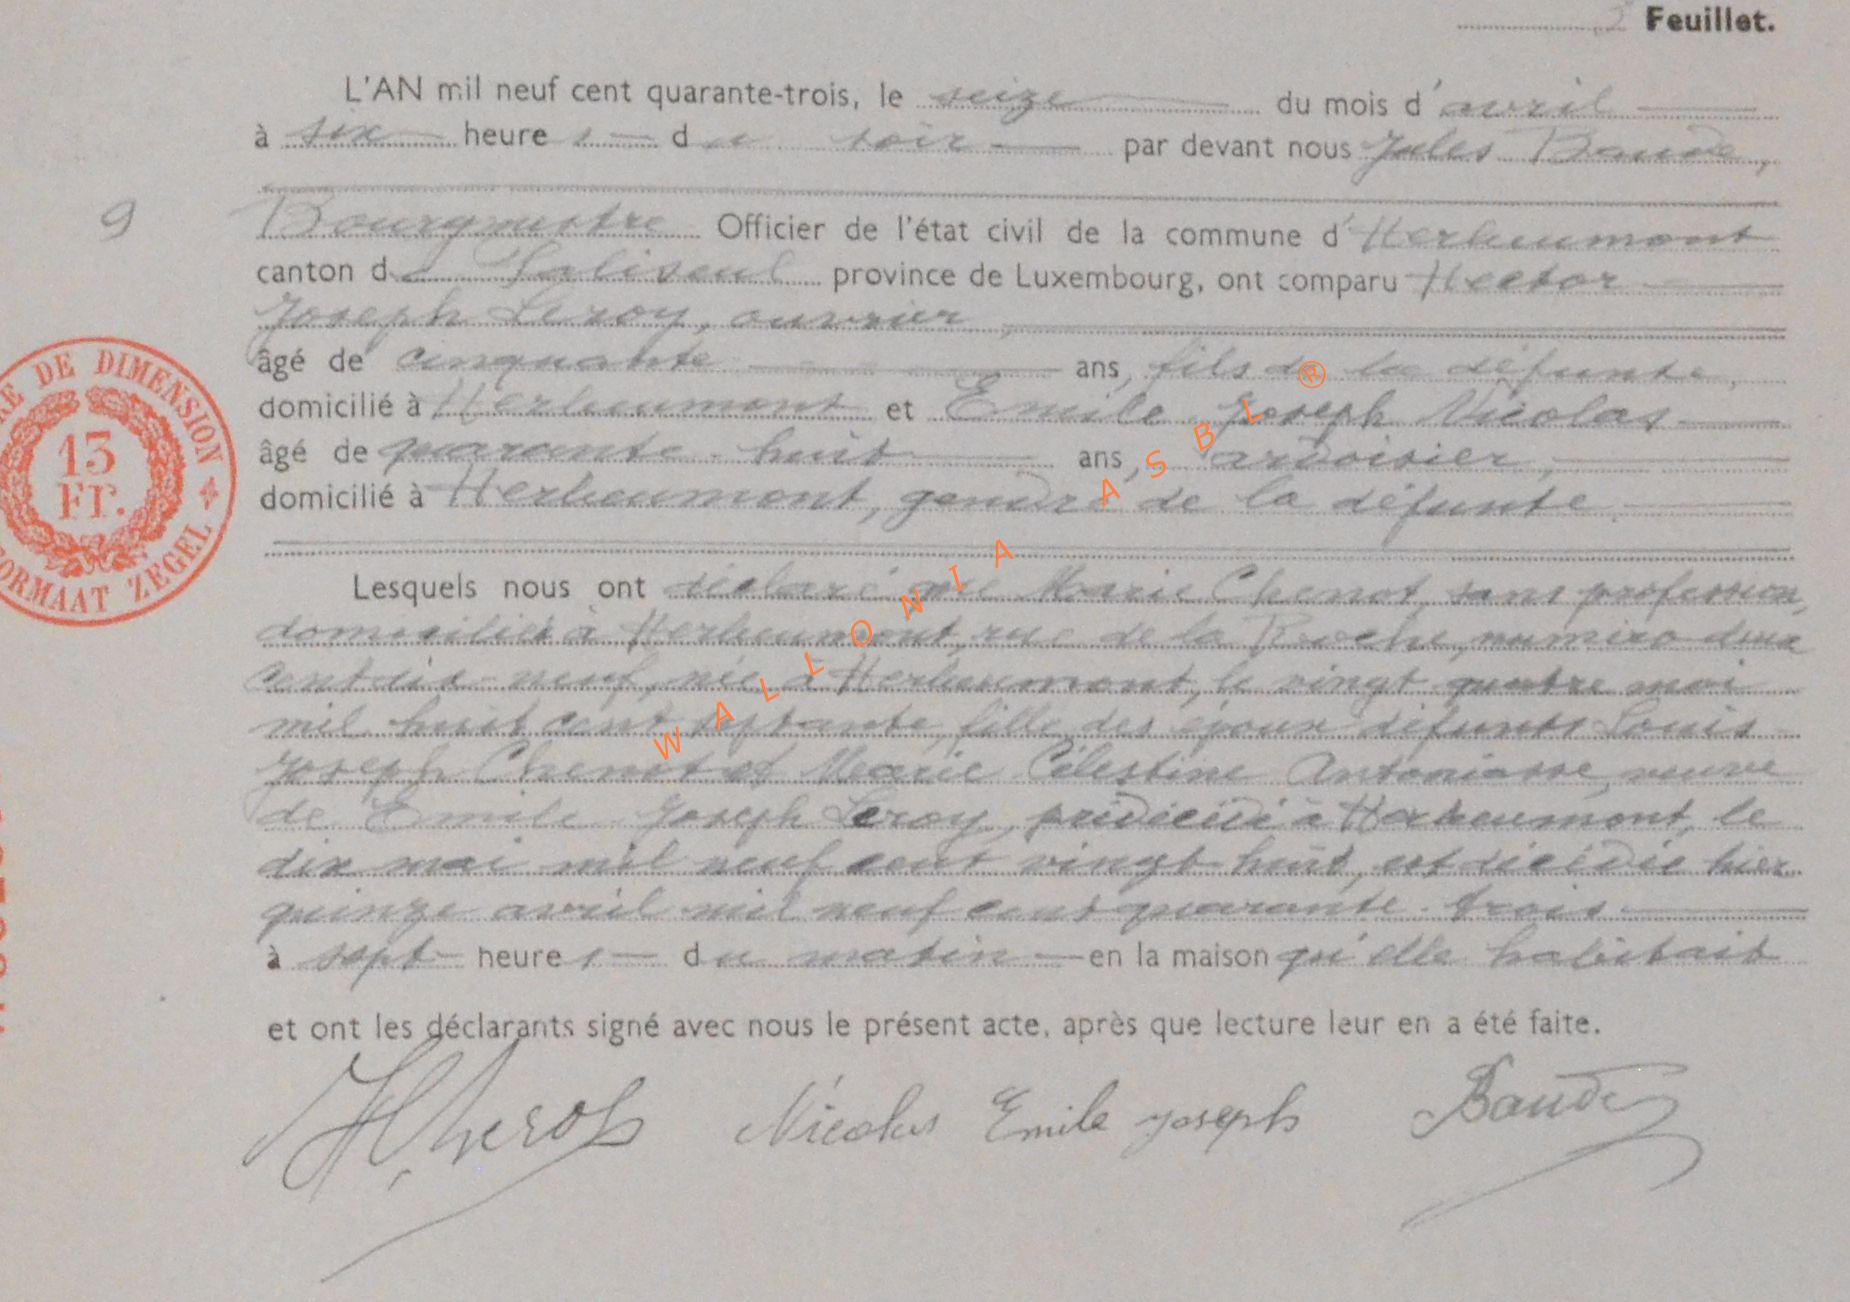 Feuillet.
L'AN mil neuf cent quarante-trois, le seize du mois d'avril
à six heures du soir par devant nous Jules Baude,
9
Bourgmestre Officier de l'état civil de la commune d'Herbeumont
canton de Paliseul province de Luxembourg, ont comparu Hector
Joseph Leroy, ouvrier,
âgé de cinquante ans, fils de la défunte,
domicilié à Herbeumont et Emile Joseph Nicolas
âgé de quarante-huit ans, ardoisier,
domicilié à Herbeumont, gendre de la défunte
Lesquels nous ont déclaré que Marie Chenot, sans profession,
domiciliée à Herbeumont, rue de la Roche, numéro deux
cent dix-neuf, née à Herbeumont, le vingt quatre mai
mil huit cent septante, fille des époux défunts Louis
Joseph Chenot et Marie Célestine Antoniasse, veuve
de Emile Joseph Leroy, prédécédé à Herbeumont, le
dix mai mil neuf cent vingt huit, est décédée hier
quinze avril mil neuf cent quarante-trois
à sept heures du matin en la maison qu'elle habitait
et ont les déclarants signé avec nous le présent acte, après que lecture leur en a été faite.
Nicolas Emile Joseph Baude
DE DIMENSION
13
Fr.
FORMAAT ZEGEL
WALLONIA ASBL ®